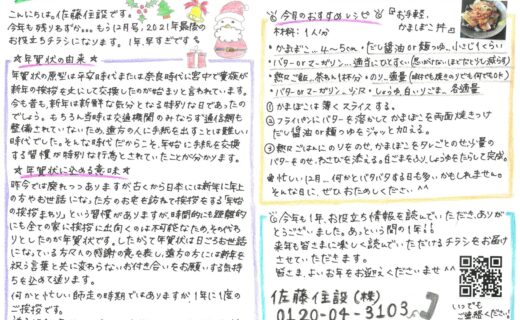 こんにちは。佐藤住設です。
今年も残りわずか…もう12月号、2021年最後の
お役立ちチラシになります。1年早すぎです
★年賀状の由来★
年賀状の原型は平安時代または奈良時代に宮中で貴族が
新年の挨拶を文にして交換したのが始まりと言われています。
今も昔も、新年は新鮮な気分となる特別な日であったの
でしょう。もちろん当時は交通機関のみならず通信網も
整備されていないため、遠方の人に手紙を出すことは難しい
時代でした。そんな時代だからこそ、年始に手紙を交換
する習慣が特別な行為とされていたことが分かります。
★年賀状に込める意味★
昨今では廃れつつありますが、古くから日本には新年に年上
の方やお世話になった方のお宅を訪ねて挨拶をする「年始
の挨拶まわり」という習慣がありますが、時間的にも距離的
にも全ての家に挨拶に出向くのは不可能なため、その代わ
りとしたのが年賀状です。したがって年賀状は日ごろお世話
になっている方々への感謝の意を表し、遠方の方には新年を
祝う言葉と共に変わらないお付き合いをお願いする気持ち
を込めて送ります。
何かと忙しい師走の時期ではありますが、1年に1度の
ご挨拶です。
今月のおすすめレシピ
お手軽、
かまぼこ丼
材料:1人分
・かまぼこ…4~5cm ・だし醤油or麺つゆ…小さじ1くらい
・バターorマーガリン…適宜
・熱々ご飯…茶わん1杯分 ・のり…適量
・バターorマーガリン…少々 ・しょうゆ、白いりごま…各適量
① かまぼこは薄くスライスする。
② フライパンにバターを溶かしてかまぼこを両面焼きつけ
だし醤油or麺つゆをジャッと加える。
③ 熱々ごはんにのりをのせ、かまぼこをタレごとのせ、少量の
バターをのせ、わさびを添える。白ごまをふり、しょうゆをたらして完成。
★忙しい12月…何かとバタバタする日も多いかもしれません。
そんな日に、ぜひおためしください^^
今年も1年、お役立ち情報を読んでいただき、ありが
とうございました。あっという間の1年
来年も皆さまに楽しく読んでいただけるチラシをお届け
させていただきます。
皆さま、よいお年をお迎えくださいませ^^
佐藤住設(株)
0120-04-3103
いつでも
ご連絡ください!